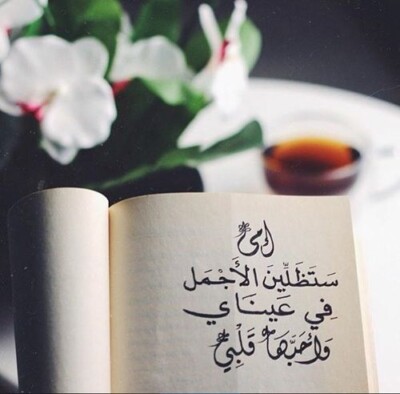 أمي
سَتَظَلِّينَ الأَجْمَل
فِي عَينَاي
وَأحَبَّهَا قَلْبِي